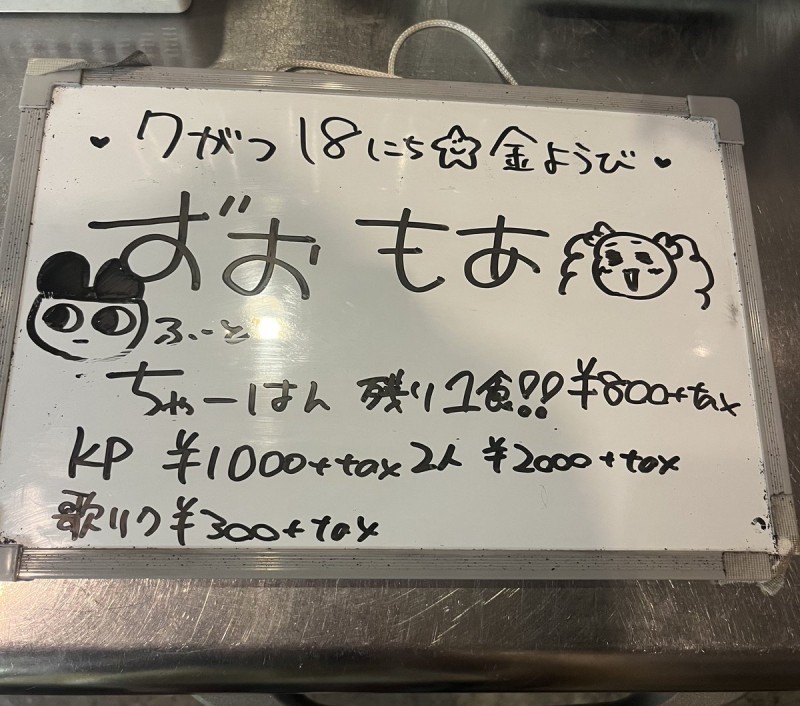 ♥ 7がつ 18にち☆金ようび ♥
ずお もあ
ふーど
ちゃーはん 残り1食!! ¥800+tax
KP ¥1000+tax 2人 ¥2000+tax
歌リク ¥300+tax